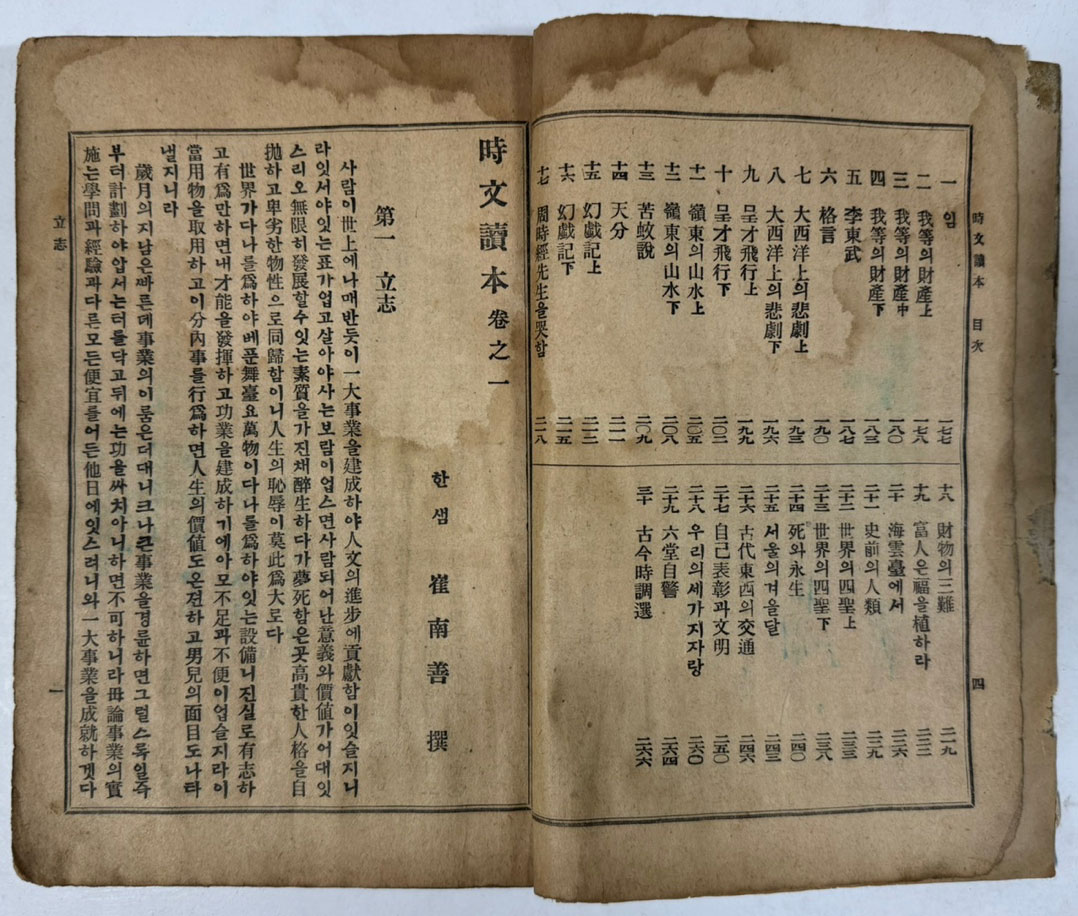 時文讀本 目次
四
一 임 一七七
二 我等의財產上 一七八
三 我等의財產中 一八〇
四 我等의財產下 一八三
五 李東武 一八七
六 格言 一九〇
七 大西洋上의悲劇上 一九三
八 大西洋上의悲劇下 一九六
九 呈才飛行上 一九九
十 呈才飛行下 二〇二
十一 嶺東의山水上 二〇五
十二 嶺東의山水下 二〇八
十三 苦蚊說 二〇九
十四 天分 二一一
十五 幻戲記上 二一三
十六 幻戲記下 二一五
十七 周時經先生을哭함 二一八
十八 財物의三難 二一九
十九 富人은福을植하라 二二三
二十 海雲臺에서 二二六
二十一 史前의人類 二二九
二十二 世界의四聖上 二三三
二十三 世界의四聖下 二三八
二十四 死와永生 二四〇
二十五 서울의겨울달 二四三
二十六 古代東西의交通 二四六
二十七 自己表彰과文明 二五〇
二十八 우리의세가지자랑 二六〇
二十九 六堂自警 二六四
三十 古今時調選 二六六
時文讀本 卷之一
한샘 崔南善 撰
第一 立志
사람이世上에나매반듯이一大事業을建成하야人文의進步에貢獻함이잇슬지니
라잇서야잇는표가업고살아야사는보람이업스면사람되어난意義와價値가어대잇
스리오無限히發展할수잇는素質을가진채醉生하다가夢死함은곳高貴한人格을自
拋하고卑劣한物性으로同歸함이니人生의恥辱이莫此爲大로다
世界가다나를爲하야베푼舞臺요萬物이다나를爲하야잇는設備니진실로有志하
고有爲만하면내才能을發揮하고功業을建成하기에아모不足과不便이업슬지라이
當用物을取用하고이分內事를行爲하면人生의價値도온젼하고男兒의面目도나타
낼지니라
歲月의지남은빠른데事業의이룸은더대니크나큰事業을경륜하면그럴스록일즉
부터計劃하야압서는터를닥고뒤에는功을싸치아니하면不可하니라毋論事業의實
施는學問과經驗과다른모든便宜를어든他日에잇스려니와一大事業을成就하겟다
立志
一